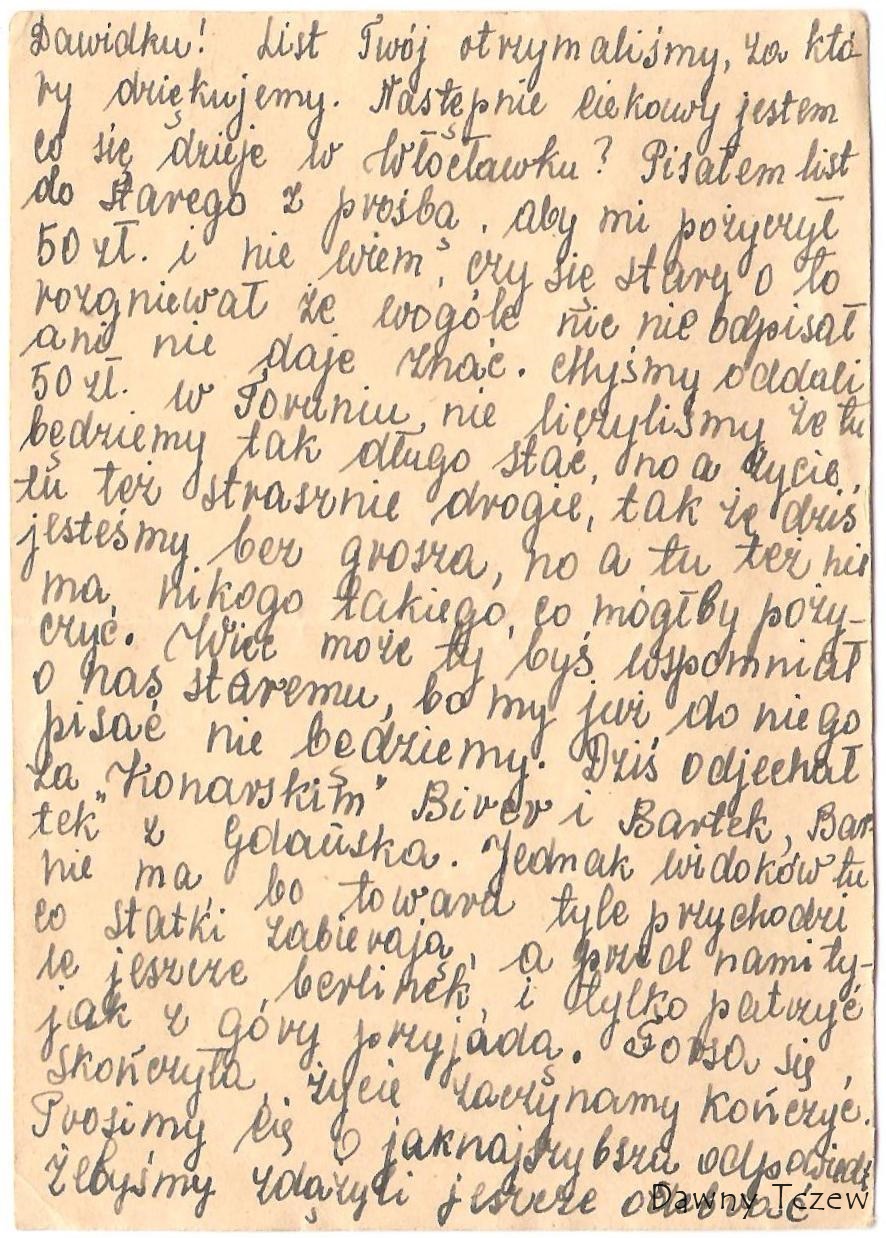 Dawidku! List Twój otrzymaliśmy, za któ-
ry dziękujemy. Następnie ciekawy jestem
co się dzieje w Włocławku? Pisałem list
do starego z prośbą, aby mi pożyczył
50 zł. i nie wiem, czy się stary o to
rozgniewał że wogóle nic nie odpisał
ani nie daje znać. Myśmy oddali
50 zł. w Toruniu, nie liczyliśmy że tu
będziemy tak długo stać, no a życie,
tu też strasznie drogie, tak że dziś
jesteśmy bez grosza, no a tu też nie
ma nikogo takiego, co mógłby poży-
czyć. Więc może ty byś wspomniał
o nas staremu, bo my już do niego
pisać nie będziemy. Dziś odjechał
za „Konarskim" Birer i Bartek, „Bar-
tek" z Gdańska. Jednak widoków tu
nie ma, bo towaru tyle przychodzi
co statki zabierają, a przed nami ty-
le jeszcze berlinek, i tylko patrzyć
jak z góry przyjadą. Forsa się,
skończyła, życie zaczynamy kończyć.
Prosimy Cię o jaknajszybszą odpowiedź
żebyśmy zdążyli jeszcze odebrać
Dawny Tczew